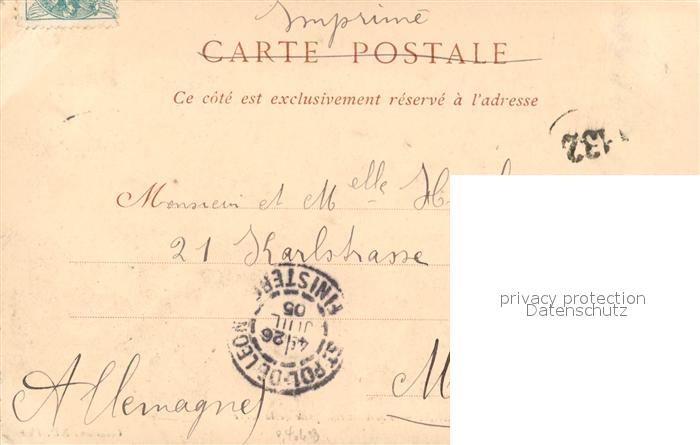 Imprimé
CARTE POSTALE
Ce côté est exclusivement réservé à l'adresse
132
Monsieur et Melle H
21 Karlstrasse
ST POL-DE-LEON
FINISTERE
4E 26
JUIL
05
privacy protection
Datenschutz
M
Allemagne